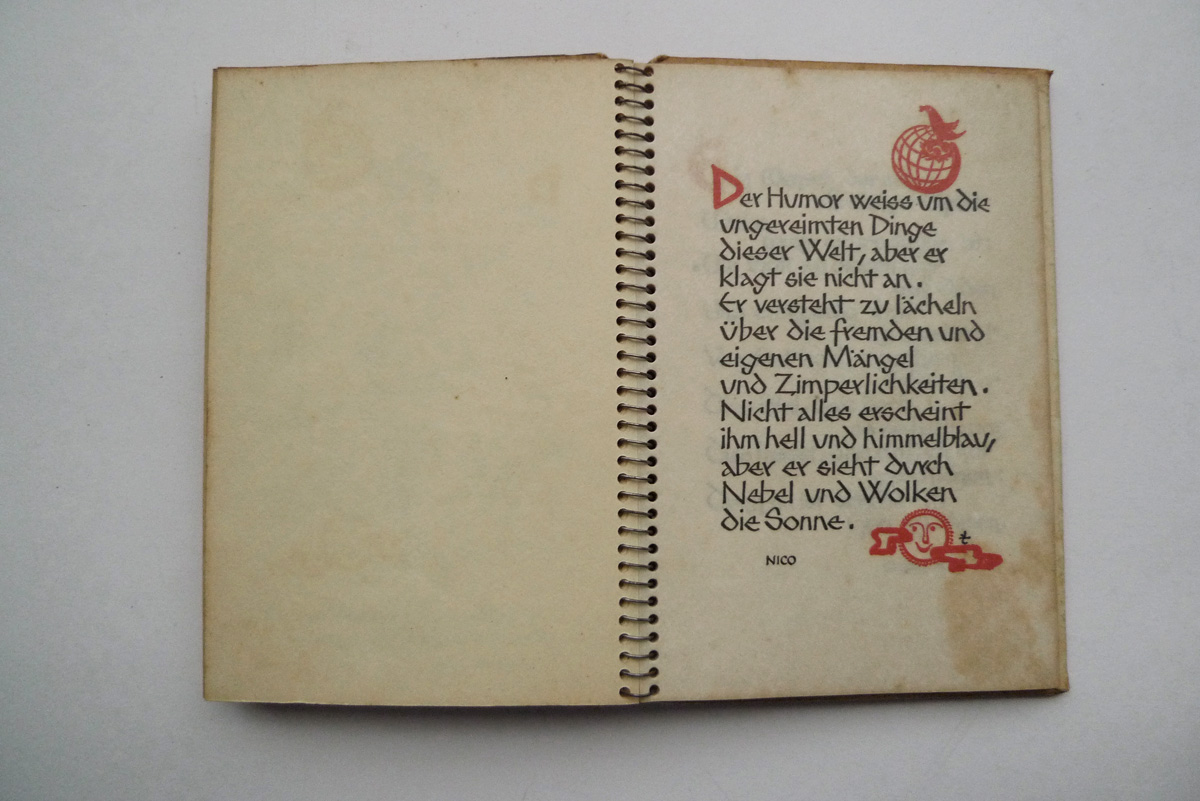 Der Humor weiss um die
ungereimten Dinge
dieser Welt, aber er
klagt sie nicht an.
Er versteht zu lächeln
über die fremden und
eigenen Mängel
und Zimperlichkeiten.
Nicht alles erscheint
ihm hell und himmelblau,
aber er sieht durch
Nebel und Wolken
die Sonne.
t
NICO